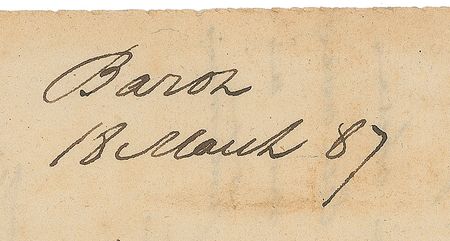 Baron
18 March 87